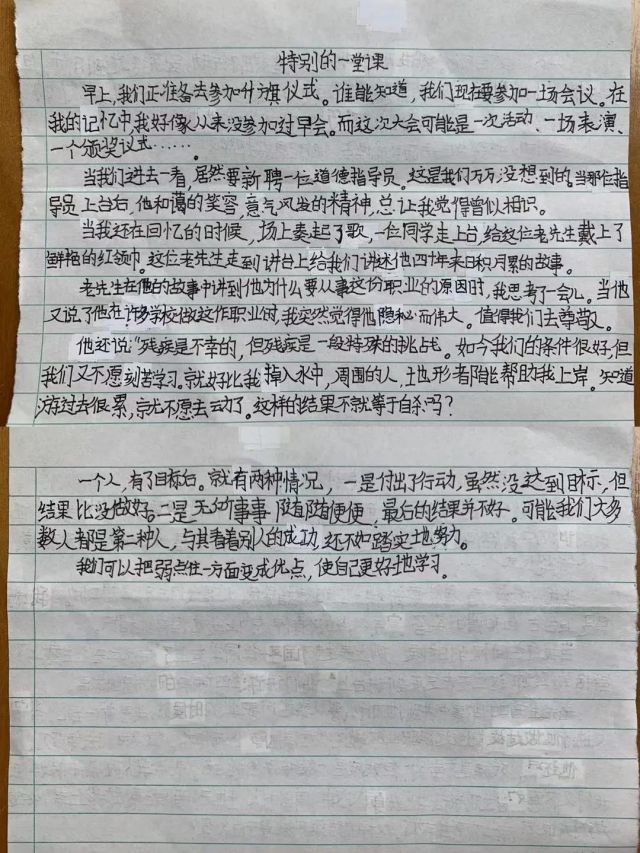 特别的一堂课
早上,我们正准备去参加升旗仪式。谁能知道,我们现在要参加一场会议。在
我的记忆中我好像从来没参加过早会。而这次大会可能是一次活动、一场表演、
一个颁奖议式……。
当我们进去一看,居然要新聘一位道德指导员。这是我们万万没想到的。当那位指
导员上台后,他和蔼的笑容,意气风发的精神,总让我觉得曾似相识。
当我还在回忆的时候,场上奏起了歌,一位同学走上台,给这位老先生戴上了
鲜艳的红领巾。这位老先生走到讲台上给我们讲述他四十年来日积月累的故事。
老先生在他的故事中讲到他为什么要从事这份职业的原因时,我思考了一会儿。当他
又说了他在许多学校做这作职业时,我突然觉得他隐秘而伟大。值得我们去尊敬。
他还说:“残疾是不幸的,但残疾是一段特殊的挑战。如今我们的条件很好,但
我们又不愿刻苦学习。就好比我掉入水中,周围的人,地形都能帮助我上岸。知道
游过去很累,就不愿去动了。这样的结果不就等于自杀吗?
一个人,有了目标后。就有两种情况,一是付出了行动,虽然没达到目标,但
结果比没做好。二是无所事事,随随便便,最后的结果并不好。可能我们大多
数人都是第二种人,与其看着别人的成功,还不如踏实地努力。
我们可以把弱点往一方面变成优点,使自己更好地学习。